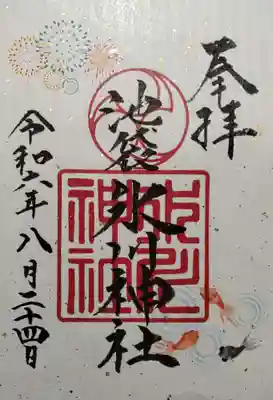 奉拝
池袋氷川神社
令和六年八月二十四日
氷川神社